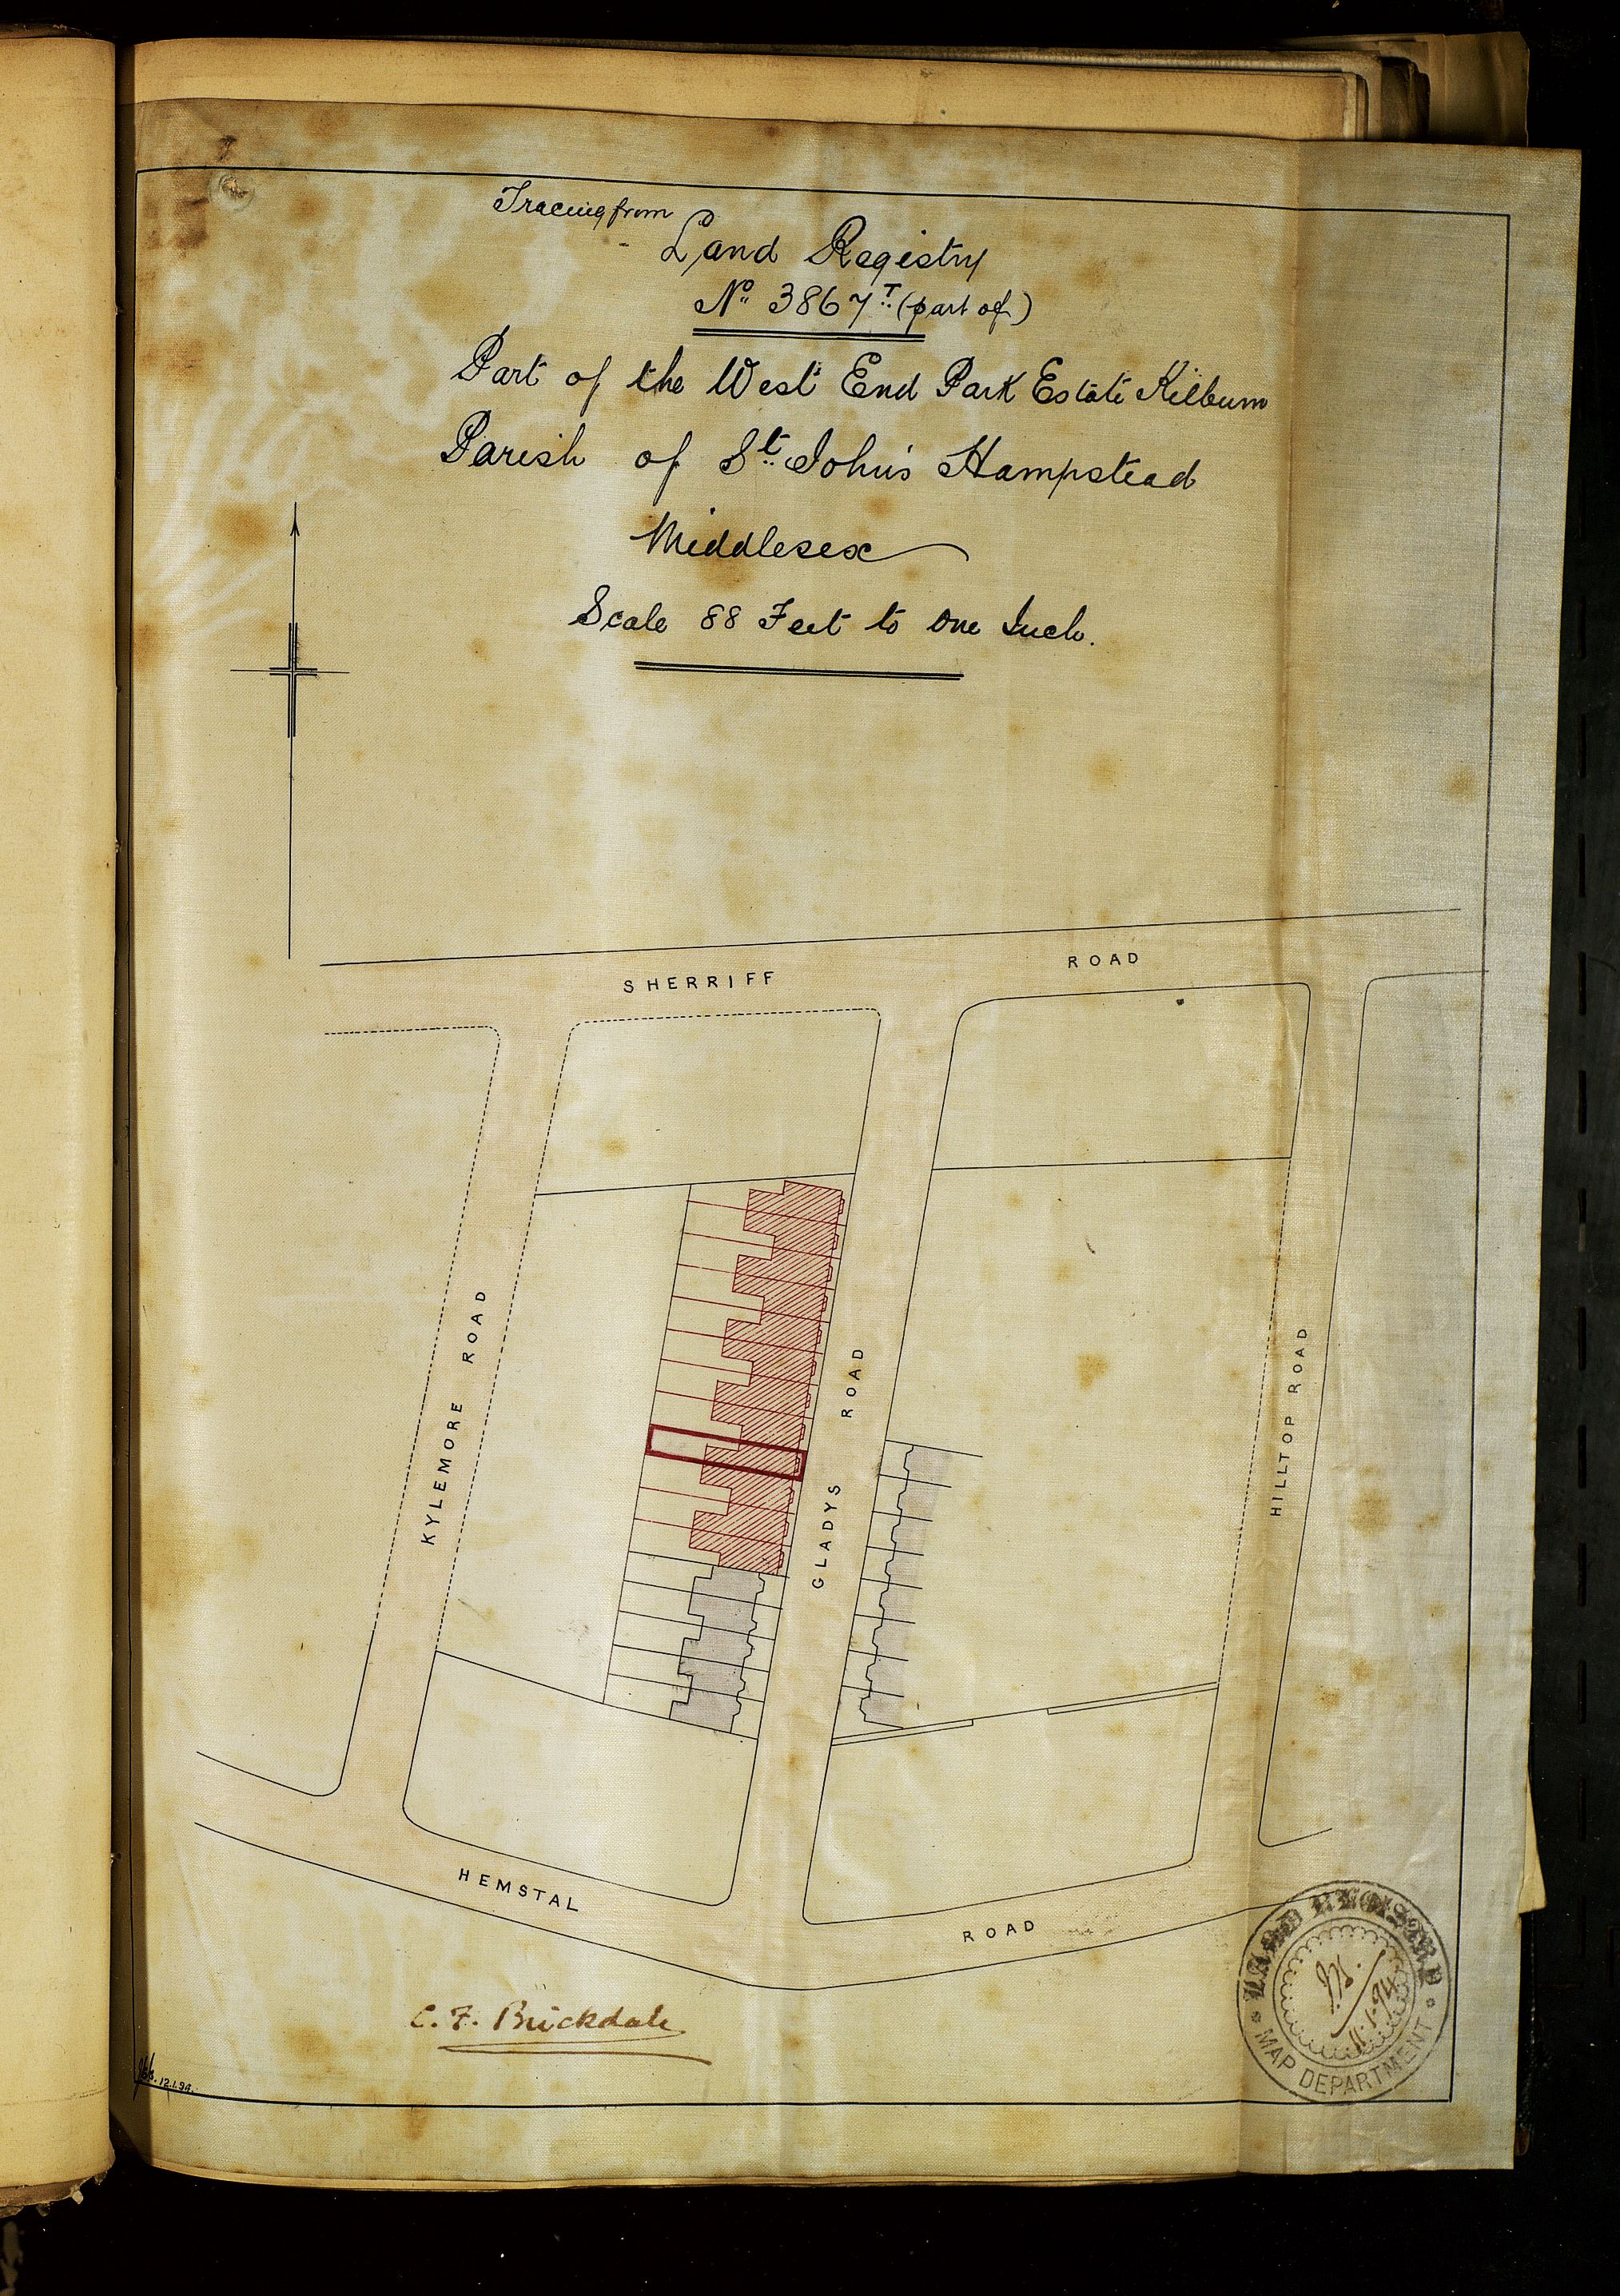 Tracing from
Land Registry
No. 3867 T. (part of)
Part of the West End Park Estate Kilburn
Parish of St. John's Hampstead
Middlesex
Scale 88 Feet to One Inch.
SHERRIFF ROAD
KYLEMORE ROAD
GLADYS ROAD
HILLTOP ROAD
HEMSTAL ROAD
C. F. Brickdale
LAND REGISTRY
MAP DEPARTMENT